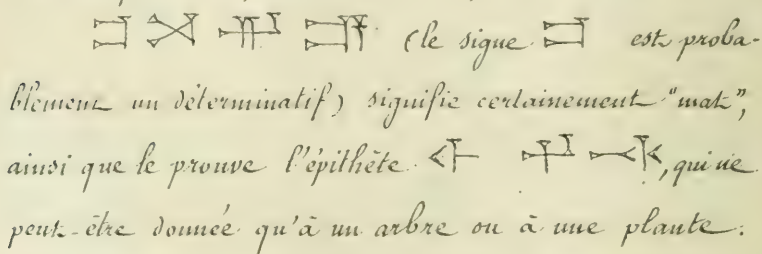 𒄑 (le signe 𒄑 est proba-
blement un déterminatif) signifie certainement "mat",
ainsi que le prouve l'épithète , qui ne
peut-être donnée qu'à un arbre ou à une plante.